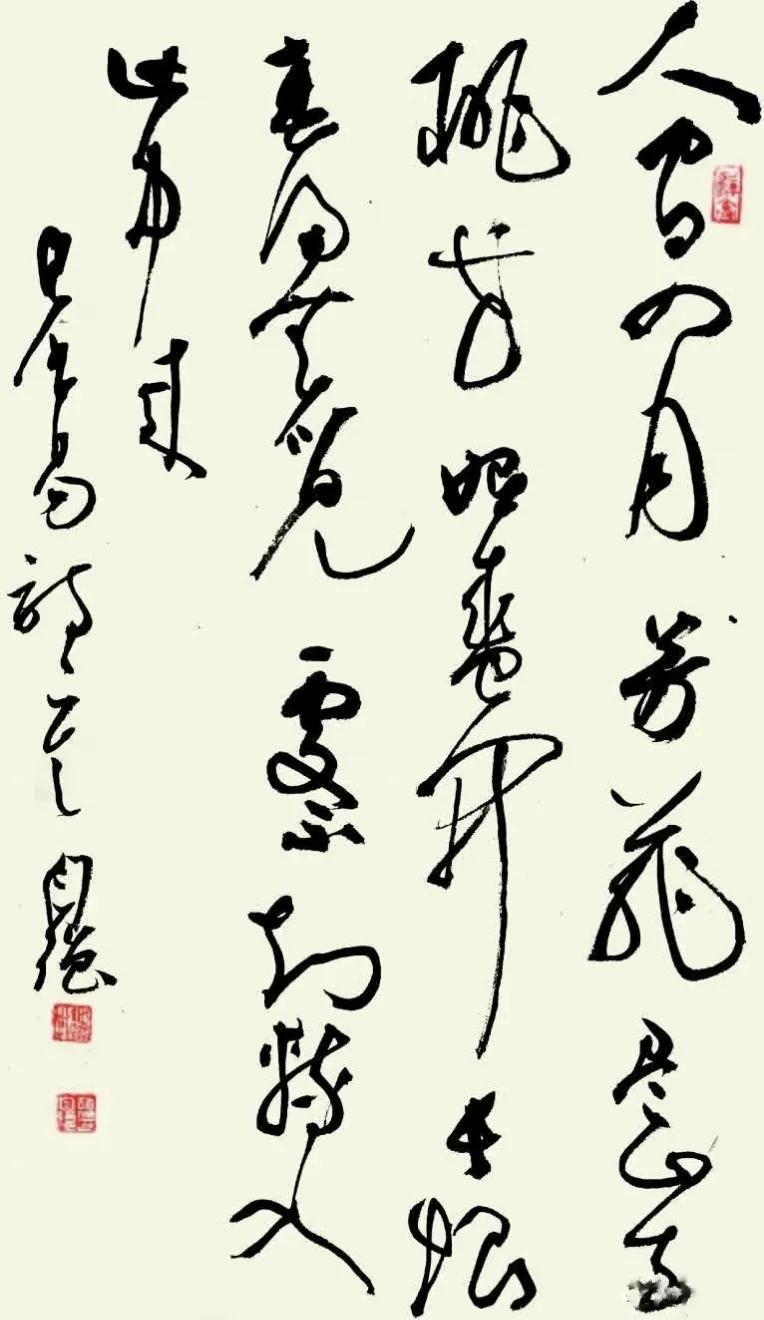 人间四月芳菲尽山寺
桃花始盛开长恨
春归无觅处不知转入
此中来
白居易诗一首